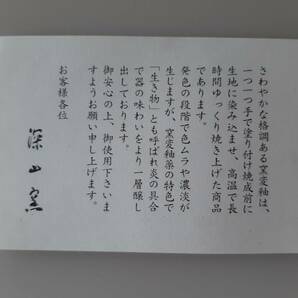 さわやかな格調ある窯変釉は、
一つ一つ手で塗り付け焼成前に
生地に染み込ませ、高温で長
時間ゆっくり焼き上げた商品
であります。
発色の段階で色ムラや濃淡が
生じますが、窯変釉薬の特色で
「生き物」とも呼ばれ炎の具合
で器の味わいをより一層醸し
出しております。
御安心の上、御使用下さいま
すようお願い申し上げます。
お客様各位
深山窯